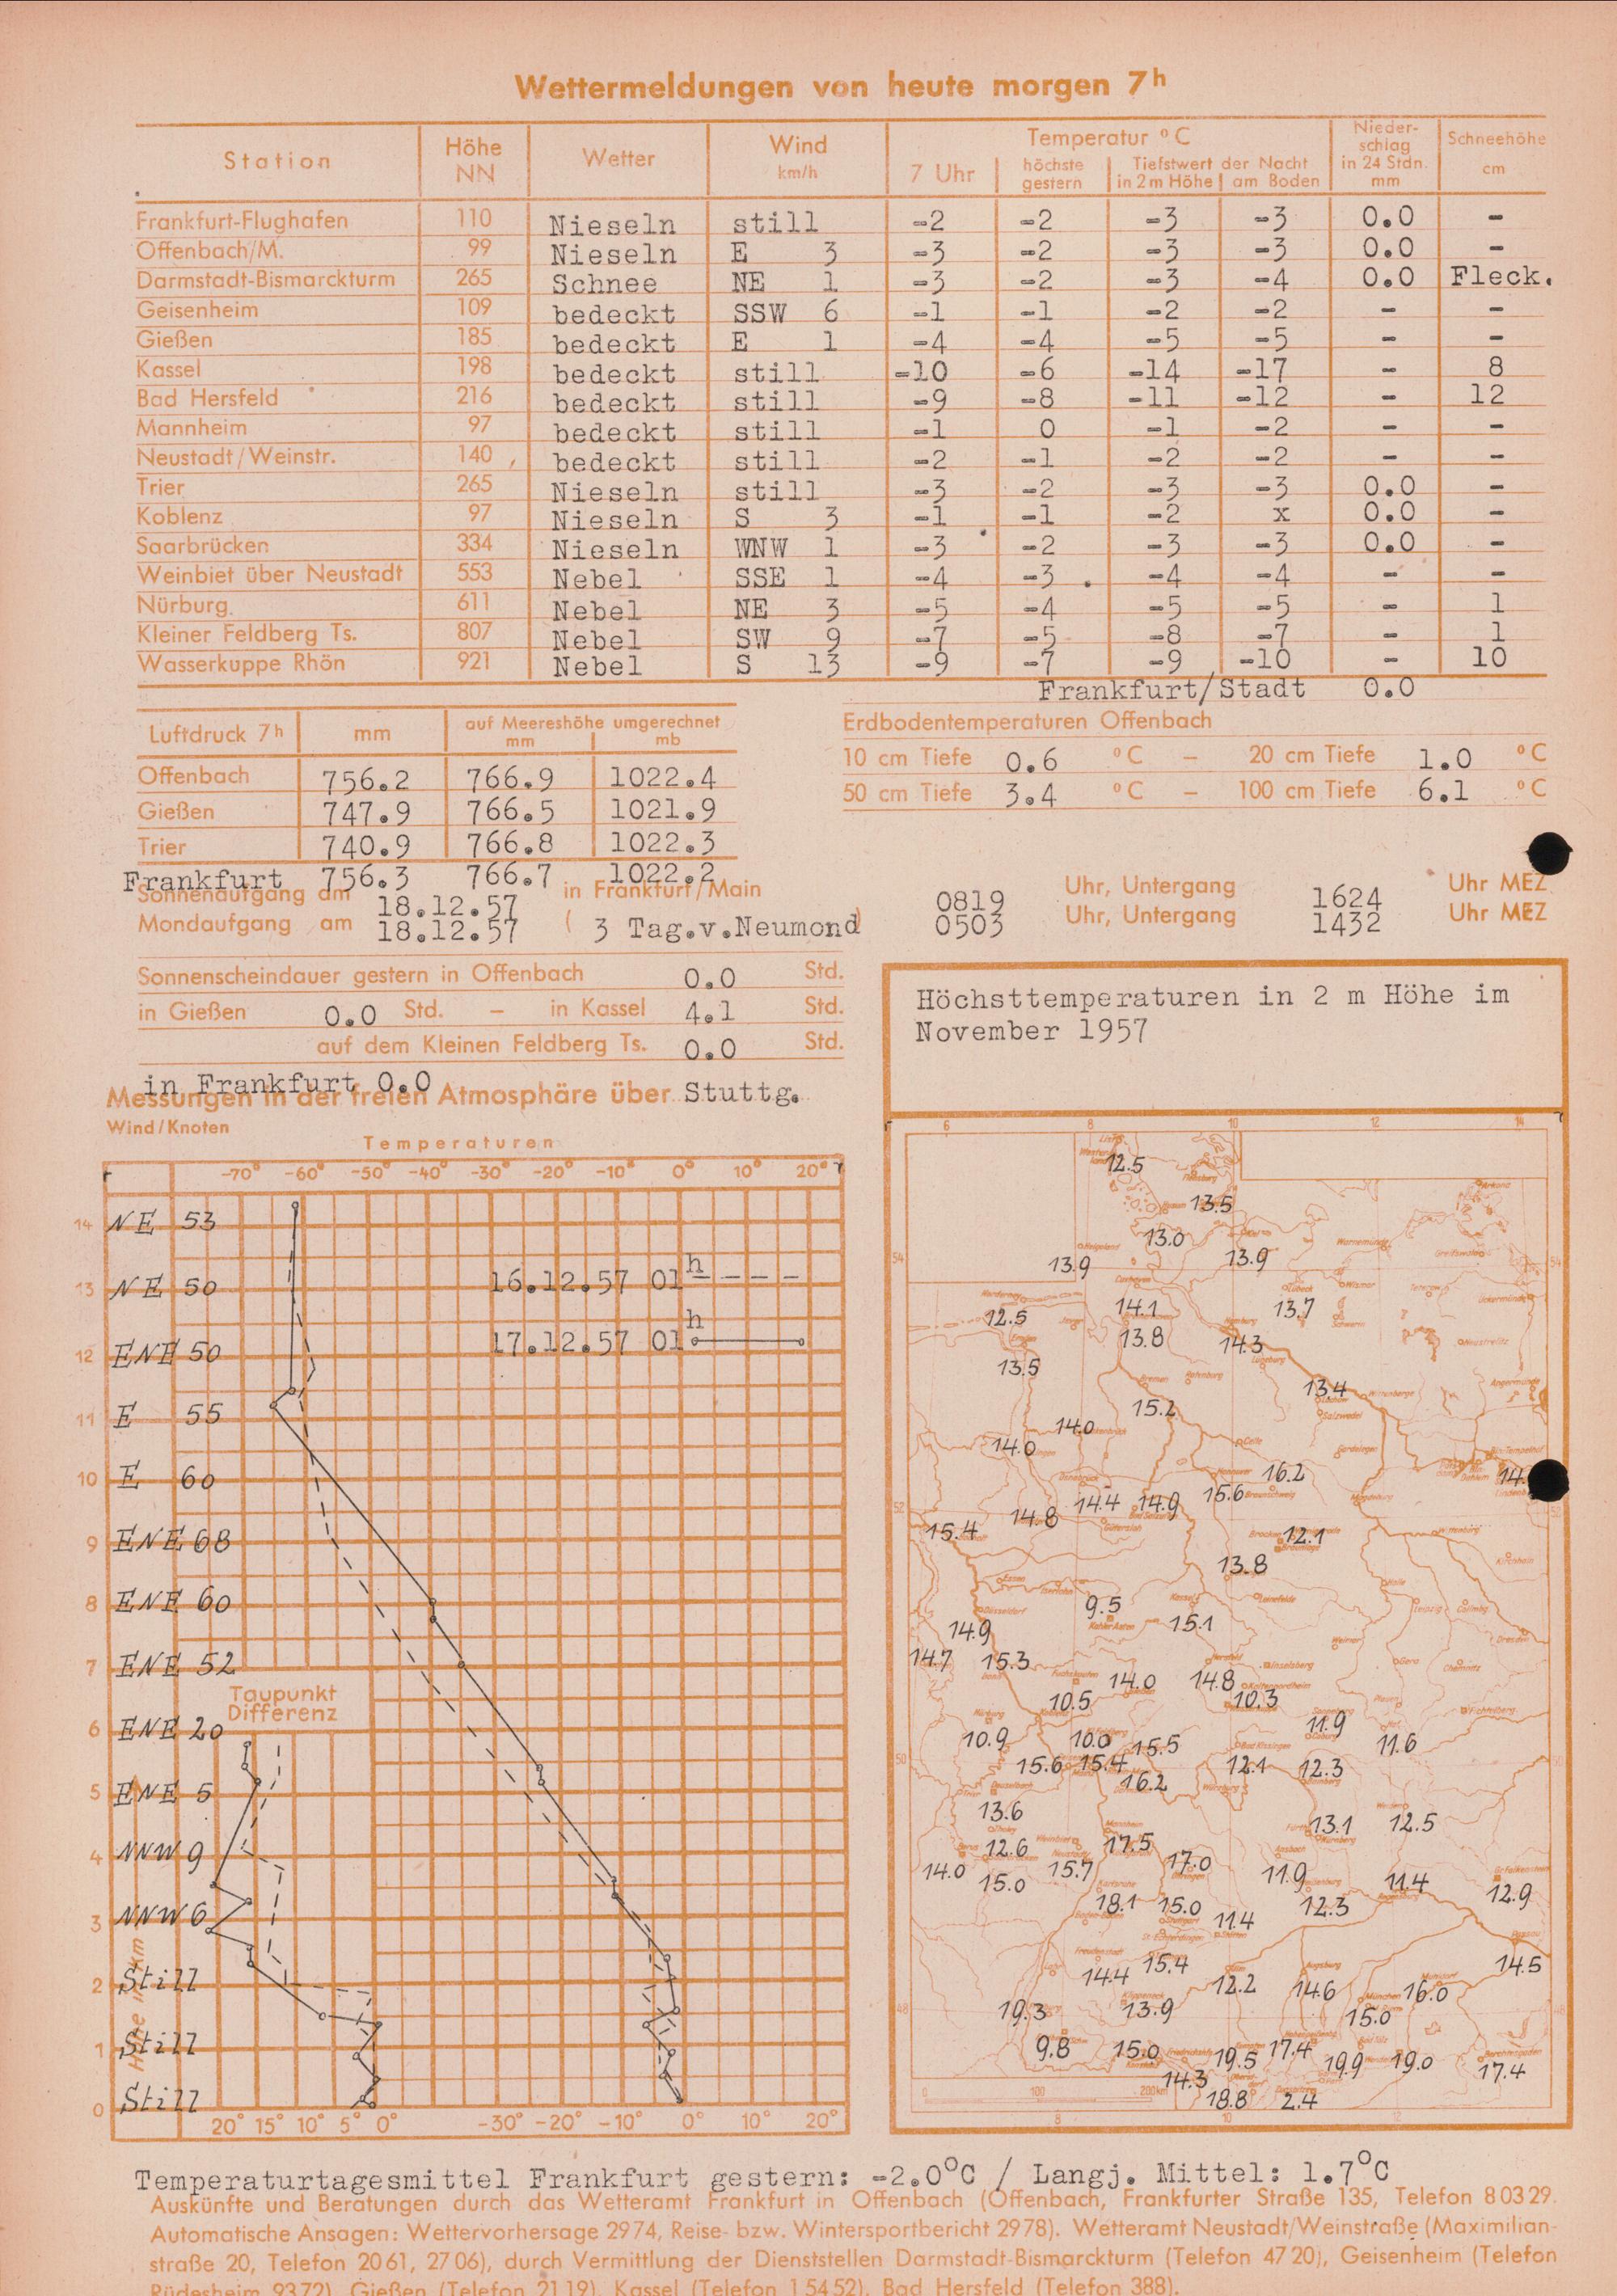 Wettermeldungen von heute morgen 7h
Station Höhe NN Wetter Wind km/h Temperatur °C 7 Uhr höchste gestern Tiefstwert der Nacht in 2m Höhe am Boden Nieder-schlag in 24 Stdn. mm Schneehöhe cm
Frankfurt-Flughafen 110 Nieseln still -2 -2 -3 -3 0.0 -
Offenbach/M. 99 Nieseln E 3 -3 -2 -3 -3 0.0 -
Darmstadt-Bismarckturm 265 Schnee NE 1 -3 -2 -3 -4 0.0 Fleck.
Geisenheim 109 bedeckt SSW 6 -1 -1 -2 -2 - -
Gießen 185 bedeckt E 1 -4 -4 -5 -5 - -
Kassel 198 bedeckt still -10 -6 -14 -17 - 8
Bad Hersfeld 216 bedeckt still -9 -8 -11 -12 - 12
Mannheim 97 bedeckt still -1 0 -1 -2 - -
Neustadt/Weinstr. 140 bedeckt still -2 -1 -2 -2 - -
Trier 265 Nieseln still -3 -2 -3 -3 0.0 -
Koblenz 97 Nieseln S 3 -1 -1 -2 x 0.0 -
Saarbrücken 334 Nieseln WNW 1 -3 -2 -3 -3 0.0 -
Weinbiet über Neustadt 553 Nebel SSE 1 -4 -3 -4 -4 - -
Nürburg 611 Nebel NE 3 -5 -4 -5 -5 - 1
Kleiner Feldberg Ts. 807 Nebel SW 9 -7 -5 -8 -7 - 1
Wasserkuppe Rhön 921 Nebel S 13 -9 -7 -9 -10 - 10
Frankfurt/Stadt 0.0
Luftdruck 7h mm auf Meereshöhe umgerechnet mm mb
Offenbach 756.2 766.9 1022.4
Gießen 747.9 766.5 1021.9
Trier 740.9 766.8 1022.3
Frankfurt 756.3 766.7 1022.2
Erdbodentemperaturen Offenbach
10 cm Tiefe 0.6 °C - 20 cm Tiefe 1.0 °C
50 cm Tiefe 3.4 °C - 100 cm Tiefe 6.1 °C
Sonnenaufgang am 18.12.57 in Frankfurt/Main 0819 Uhr, Untergang 1624 Uhr MEZ
Mondaufgang am 18.12.57 ( 3 Tag.v.Neumond) 0503 Uhr, Untergang 1432 Uhr MEZ
Sonnenscheindauer gestern in Offenbach 0.0 Std.
in Gießen 0.0 Std. - in Kassel 4.1 Std.
auf dem Kleinen Feldberg Ts. 0.0 Std.
in Frankfurt 0.0
Messungen in der freien Atmosphäre über Stuttg.
Wind/Knoten
Temperaturen
-70° -60° -50° -40° -30° -20° -10° 0° 10° 20°
14 NE 53
13 NE 50
16.12.57 01h - - - -
12 ENE 50
17.12.57 01h
11 E 55
10 E 60
9 ENE 68
8 ENE 60
7 ENE 52
Taupunkt
Differenz
6 ENE 20
5 ENE 5
4 NNW 9
3 NNW 6
2 Still
1 Still
0 Still
Höhe in km
20° 15° 10° 5° 0° -30° -20° -10° 0° 10° 20°
Höchsttemperaturen in 2 m Höhe im
November 1957
6 8 10 12 14
12.5
13.5
13.0
13.9 13.9
54 54
14.1 13.7
12.5
13.8 14.3
13.5
13.4
15.2
14.0
14.0
16.2 14.
15.6
14.4 14.9
52
14.8
15.4 12.1
13.8
9.5
15.1
14.9
14.7 15.3
14.0 14.8
10.5 10.3
11.9
10.9 10.0 15.5 11.6
50
15.6 15.4 12.1 12.3
16.2
13.6
13.1 12.5
12.6 17.5
14.0 15.7 17.0 11.9
15.0 11.4 12.9
18.1 15.0 12.3
11.4
15.4 14.5
14.4 12.2 14.6 16.0
48
19.3 13.9 15.0
9.8 15.0 19.5 17.4 19.9 19.0
17.4
14.3
0 100 200km
18.8 2.4
8 10 12
Temperaturtagesmittel Frankfurt gestern: -2.0°C / Langj. Mittel: 1.7°C
Auskünfte und Beratungen durch das Wetteramt Frankfurt in Offenbach (Offenbach, Frankfurter Straße 135, Telefon 80329.
Automatische Ansagen: Wettervorhersage 2974, Reise- bzw. Wintersportbericht 2978). Wetteramt Neustadt/Weinstraße (Maximilian-
straße 20, Telefon 2061, 2706), durch Vermittlung der Dienststellen Darmstadt-Bismarckturm (Telefon 4720), Geisenheim (Telefon
Rüdesheim 9372), Gießen (Telefon 2119), Kassel (Telefon 15452), Bad Hersfeld (Telefon 388).